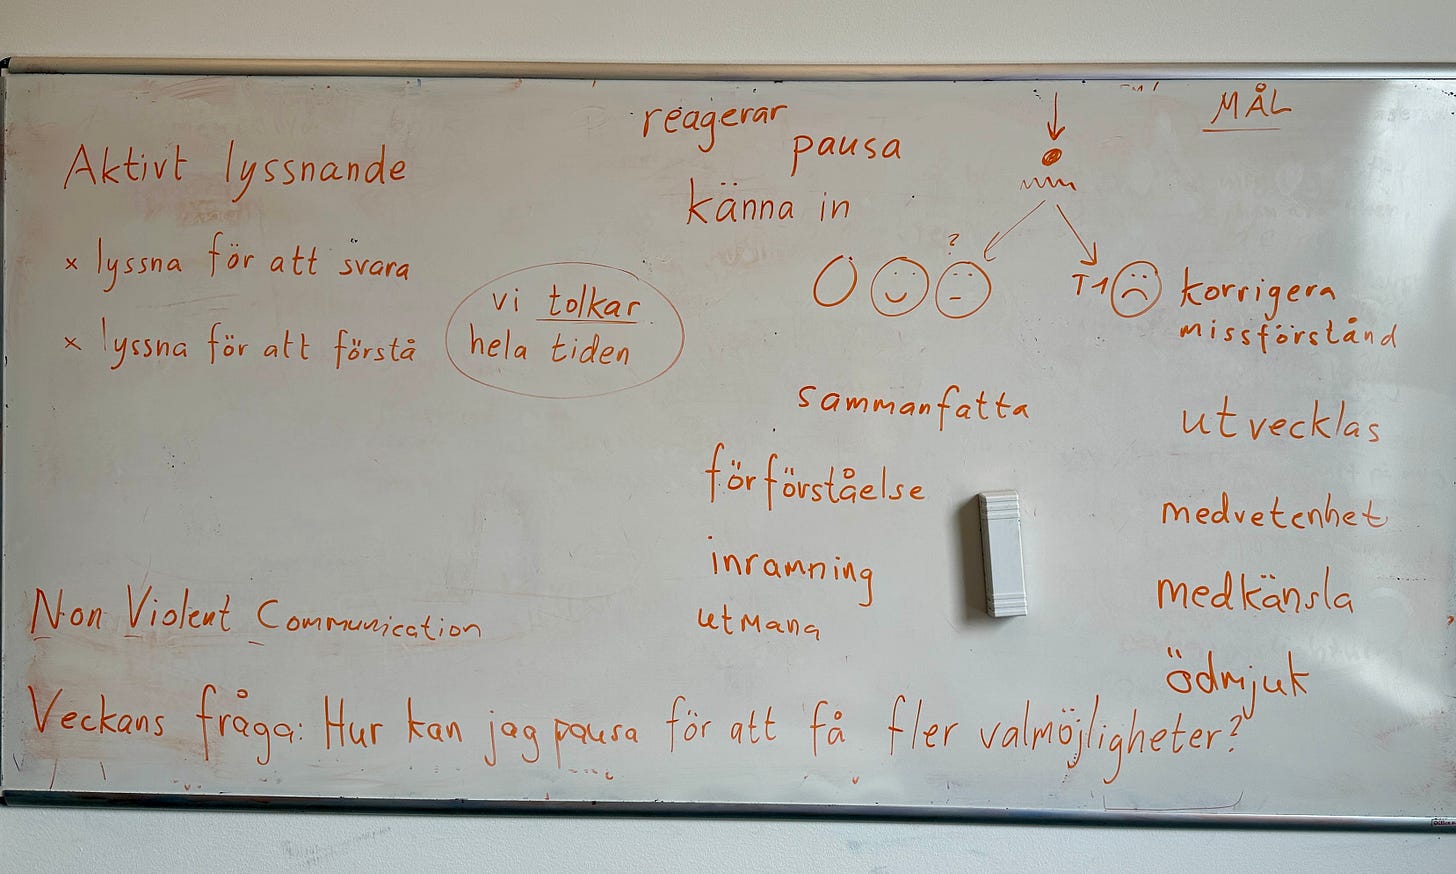 Aktivt lyssnande
× lyssna för att svara
× lyssna för att förstå
vi tolkar
hela tiden
reagerar
pausa
känna in
?
T1
sammanfatta
förförståelse
inramning
utmana
MÅL
korrigera
missförstånd
utvecklas
medvetenhet
medkänsla
ödmjuk
Non Violent Communication
Veckans fråga: Hur kan jag pausa för att få fler valmöjligheter?